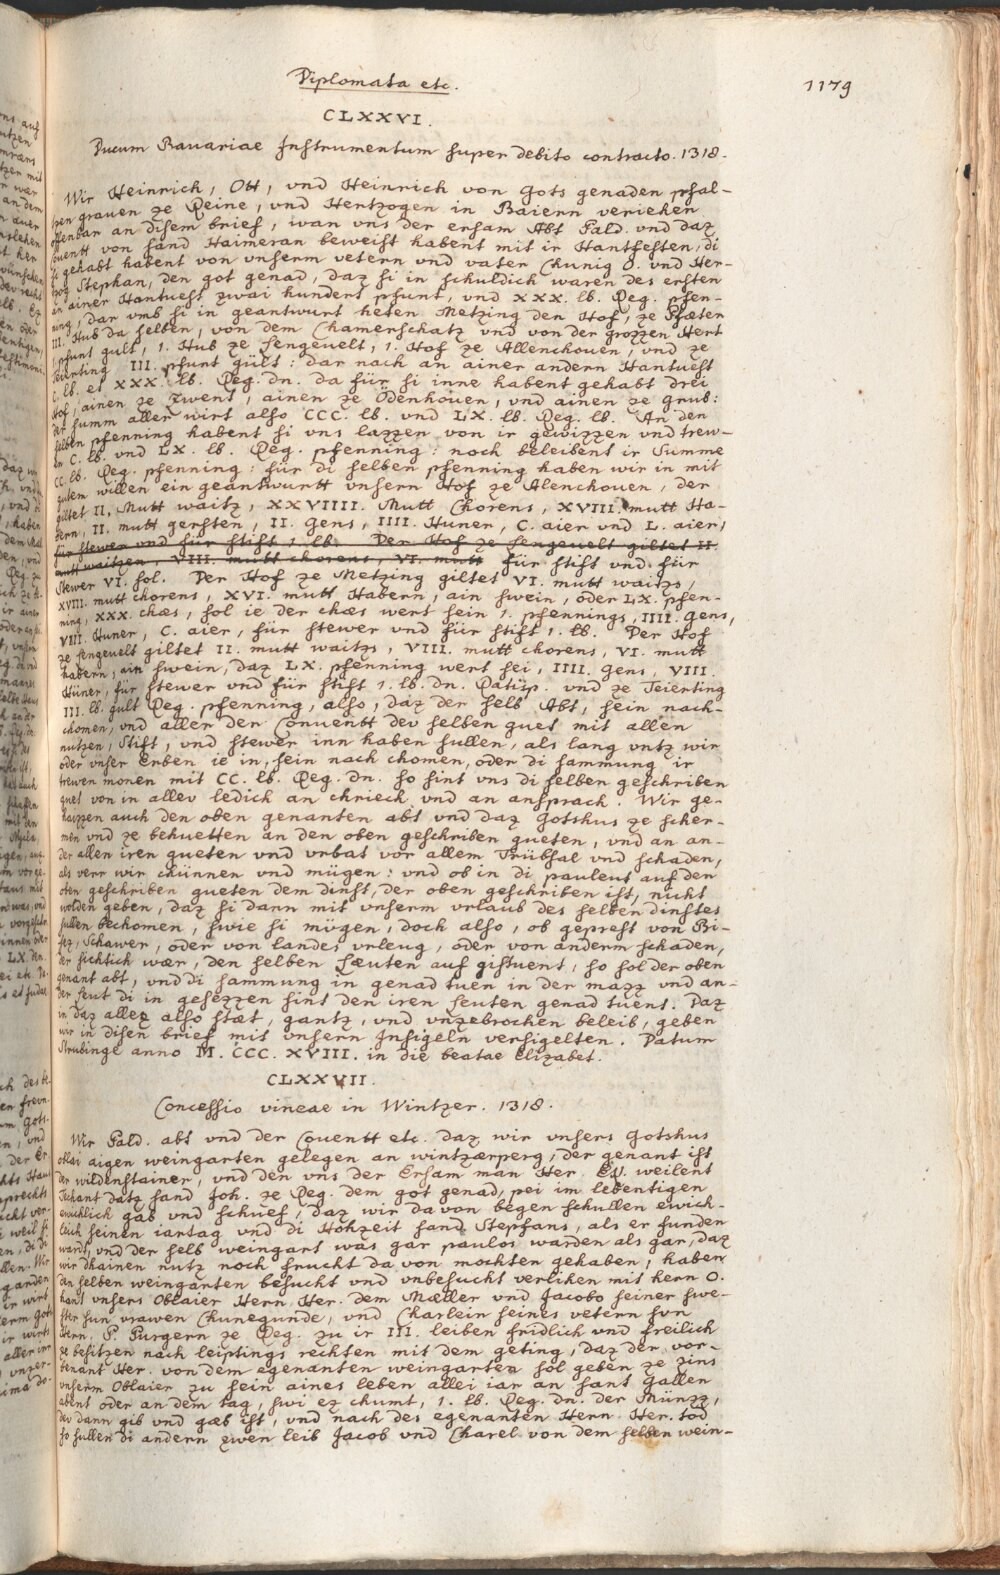 Diplomata etc.
1179
CLXXVI.
Ducum Bavariae Instrumentum super debito contracto. 1318.
Wir Heinrich, Ott, vnd Heinrich von Gots genaden pfal-
tzen grauen ze Reine, vnd Hertzogen in Baiern veriehen
offenbar an disem brief, wan vns der ersam Abt Bald. vnd daz
Couentt von sand Haimeran beweist habent mit ir Hantfesten, di
si gehabt habent von vnserm vetern vnd vater Chunig O. vnd Her-
tzog Stephan, den got genad, daz si in schuldich waren des ersten
an ainer Hantuest zwai hundert pfunt, vnd XXX. lb. Reg. pfen-
ning, dar vmb si in geantwurt heten Metzing den Hof, ze Pfæten
III. Hub da selben, von dem Chamerschatz vnd von der grozzen Hert
1. pfunt gult, 1. Hub ze Sengeuelt, 1. Hof ze Allenchouen, vnd ze
Teierting III. pfunt gült: dar nach an ainer andern Hantuest
C. lb. et XXX. lb. Reg. dn. da für si inne habent gehabt drei
Hof, ainen ze Zwent, ainen ze Ödenhouen, vnd ainen ze Grub:
der summ aller wirt also CCC. lb. vnd LX. lb. Reg. lb. An den
selben pfenning habent si vns lazzen von ir gewizzen vnd trew-
en C. lb. vnd LX. lb. Reg. pfenning: noch beleibent ir Summe
CC. lb. Reg. pfenning: für di selben pfenning haben wir in mit
gutem willen ein geantwurtt vnsern Hof ze Alenchouen, der
giltet II. Mutt waitz, XXVIIII. Mutt Chorens, XVIII. mutt Ha-
bern, II. mutt gersten, II. Gens, IIII. Huner, C. aier vnd L. aier,
für stewer vnd für stift 1. lb. Der Hof ze Sengeuelt giltet II.
mutt waitzen, VIII. mutt chorens, VI. mutt für stift vnd für
Stewer VI. sol. Der Hof ze Metzing giltet VI. mutt waitzs,
XVIII. mutt chorens, XVI. mutt Habern, ain swein, oder LX. pfen-
ning, XXX. chæs, sol ie der chæs wert sein 1. pfennings, IIII. Gens,
VIII. Huner, C. aier, für stewer vnd für stift 1. lb. Der Hof
ze Sengeuelt giltet II. mutt waitzs, VIII. mutt chorens, VI. mutt
habern, ain swein, daz LX. pfenning wert sei, IIII. Gens, VIII.
Hüner, für stewer vnd für stift 1. lb. dn. Ratisp. vnd ze Teierting
III. lb. gult Reg. pfenning, also, daz der selb Abt, sein nach-
chomen, vnd aller der Conuentt dev selben guet mit allen
nutzen, Stift, vnd stewer inn haben sullen, als lang vntz wir
oder vnser Erben ie in, sein nach chomen, oder di sammung ir
trewen monen mit CC. lb. Reg. dn. so sint vns di selben geschriben
guet von in allev ledich an chriech vnd an ansprach. Wir ge-
haizzen auch den oben genanten abt vnd daz Gotshus ze scher-
men vnd ze behuetten an den oben geschriben gueten, vnd an an-
der allen iren gueten vnd vrbat vor allem Trübsal vnd schaden,
als verr wir chünnen vnd mügen: vnd ob in di pauleut auf den
oben geschriben gueten dem dinst, der oben geschriben ist, nicht
wolden geben, daz si dann mit vnserm vrlaub des selben dinstes
sullen bechomen, swie si mvgen, doch also, ob geprest von Bi-
sez, Schawer, oder von landes vrleug, oder von anderm schaden,
der sichtich wær, den selben Læuten auf gistuent, so sol der oben
genant abt, vnd di sammung in genad tuen in der mazz vnd an-
der leut di in gesezzen sint den iren leuten genad tuent. Daz
in daz allez also stæt, gantz, vnd vnzebrochen beleib, geben
wir in disen brief mit vnsern Insigeln versigelten. Datum
Strubinge anno M. CCC. XVIII. in die beatae Elizabet.
CLXXVII.
Concessio vineae in Wintzer. 1318.
Wir Bald. abt vnd der Couentt etc. daz wir vnsers Gotshus
oblai aigen weingarten gelegen an wintzærperg, der genant ist
der wildenstainer, vnd den vns der Ersam man Her weilent
Techant datz sand Joh. ze Reg. dem got genad, pei im lebentigen
ewichlich gab vnd schuef, daz wir da von begen schullen ewich-
leich seinen iartag vnd di Hohzeit sand Stephans, als er funden
ward, vnd der selb weingart was gar paulos warden als gar, daz
wir dhainen nutz noch frucht da von mochten gehaben, haben
den selben weingarten besucht vnd vnbesucht verlihen mit hern O.
hant vnsers Oblaier Hern Her. dem Mæller vnd Jacobo seiner swe-
ster sun vrawen Chunegunde, vnd Charlein seines vetern svn
Hern. P. Purgern ze Reg. zu ir III. leiben fridlich vnd freilich
ze besitzen nach leiptings rechten mit dem geting, daz der vor-
benant Her. von dem egenanten weingarten sol geben ze zins
vnserm Oblaier zu sein aines leben allei iar an sant Gallen
abent oder an dem tag, swi ez chumt, 1. lb. Reg. dn. der Münzz,
dev dann gib vnd gæb ist, vnd nach des egenanten Hern Her. tod
so sullen di andern zwen leib Jacob vnd Charel von dem selben wein-